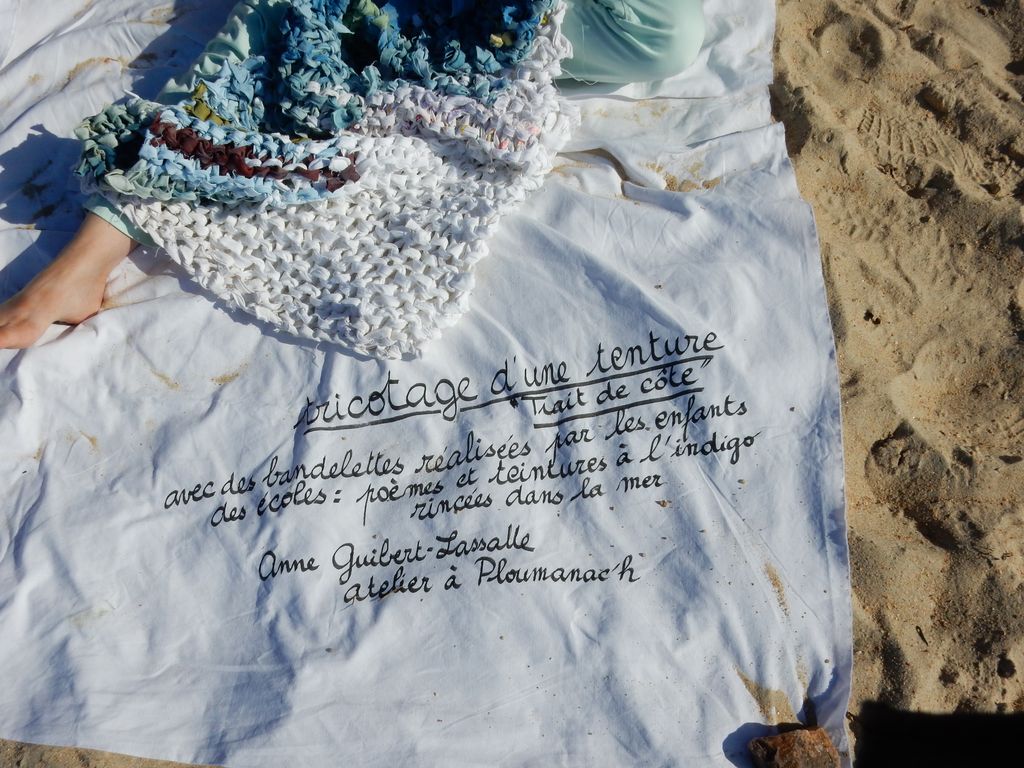 tricotage d'une tenture
"Trait de côte"
avec des bandelettes réalisées par les enfants
des écoles : poèmes et teintures à l'indigo
rincées dans la mer
Anne Guibert-Lassalle
atelier à Ploumanac'h